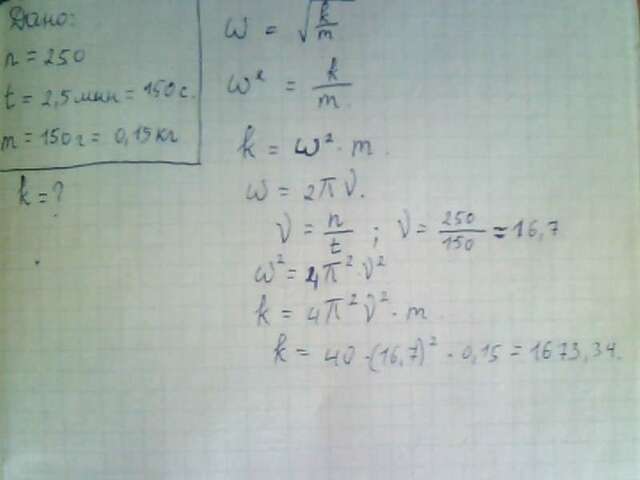 Дано:
n = 250
t = 2,5 мин = 150 с.
m = 150 г = 0,15 кг
k = ?
ω = √k/m
ω² = k/m.
k = ω² · m.
ω = 2πν.
ν = n/t ; ν = 250/150 = 16,7
ω² = 4π² · ν²
k = 4π²ν² · m.
k = 40 · (16,7)² · 0,15 = 1673,34.